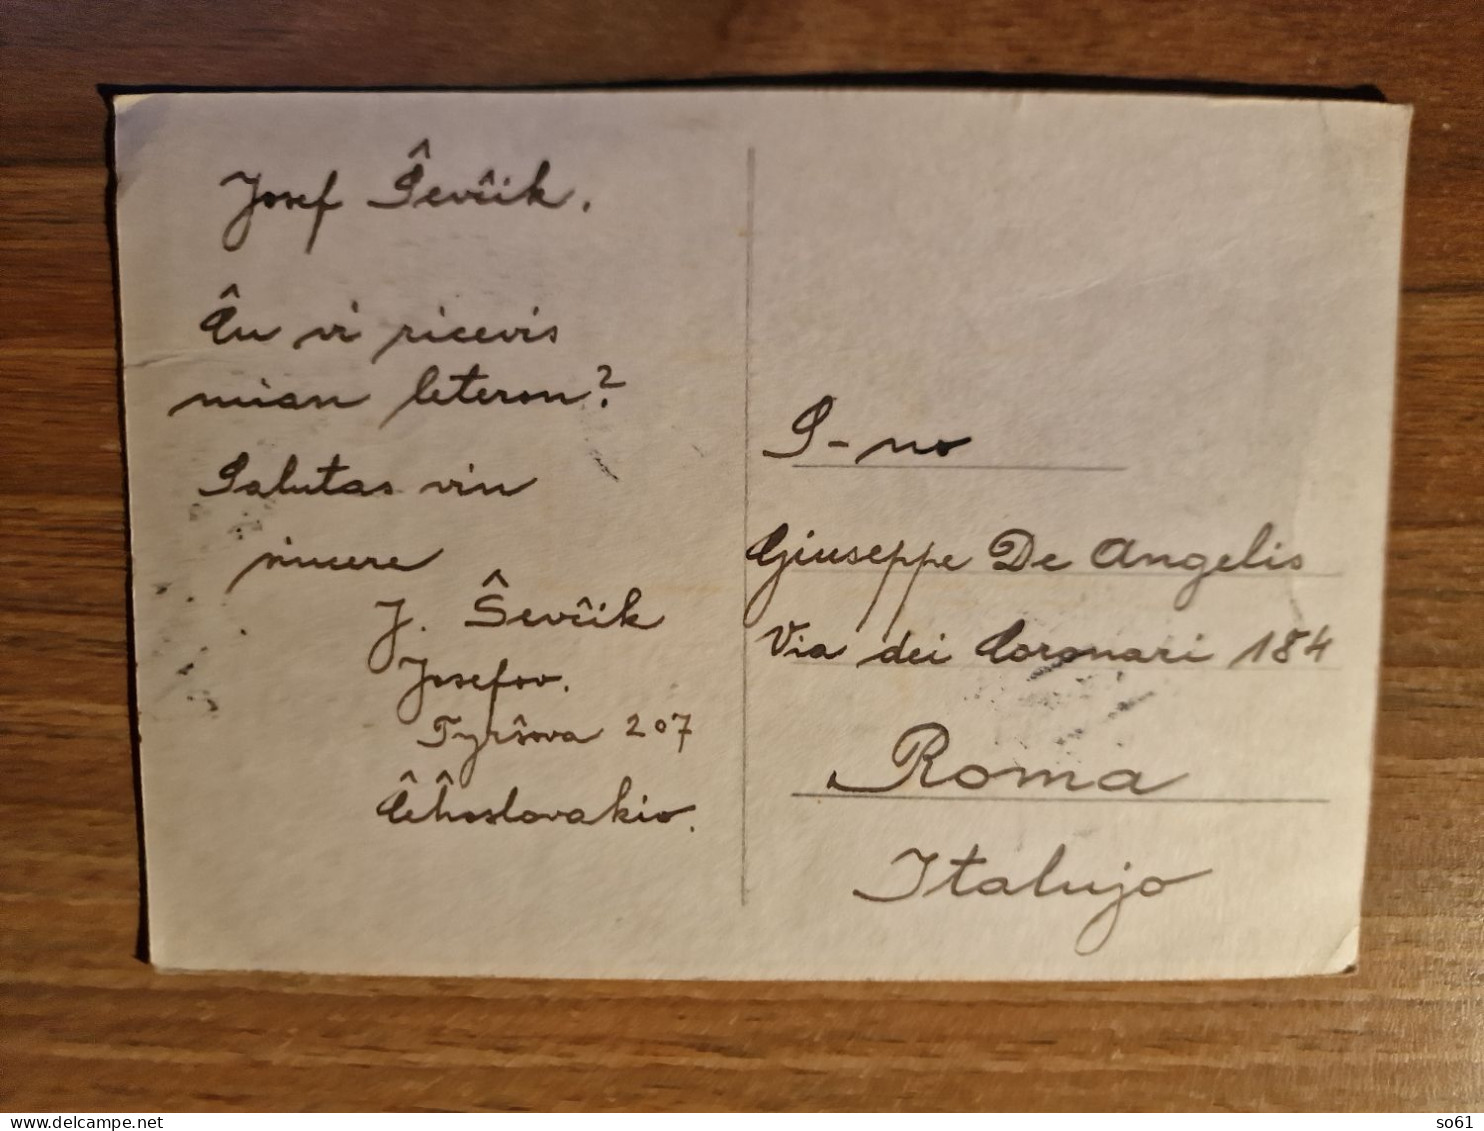 Josef Ŝevĉik.
Ĉu vi ricevis
mian leteron?
Salutas vin
sincere
J. Ŝevĉik
Josefov.
Tyrŝova 207
Ĉeĥoslovakio.
S-no
Giuseppe De Angelis
Via dei Coronari 184
Roma
Italujo
delcampe.net
so61